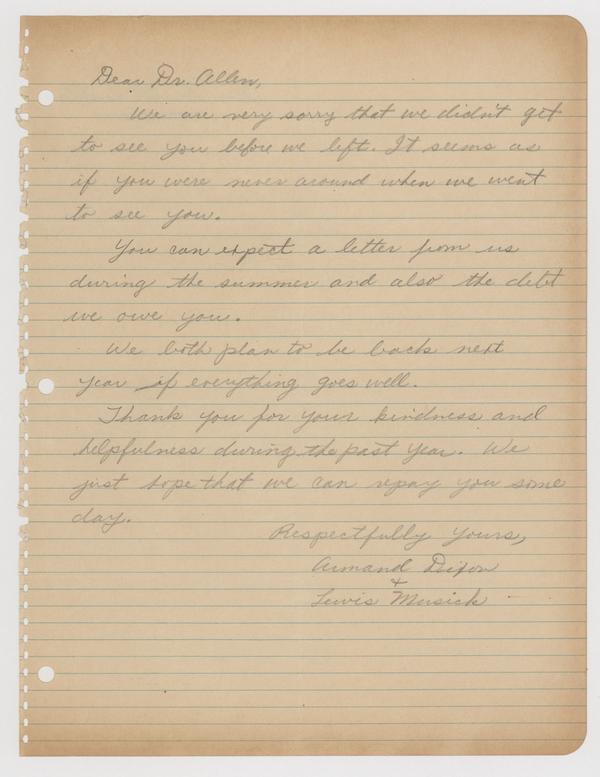 Dear Dr. Allen,
We are very sorry that we didn't get
to see you before we left. It seems as
if you were never around when we went
to see you.
You can expect a letter from us
during the summer and also the debt
we owe you.
We both plan to be back next
year if everything goes well.
Thank you for your kindness and
helpfulness during the past year. We
just hope that we can repay you some
day.
Respectfully yours,
Armand Dixon
+
Lewis Musick